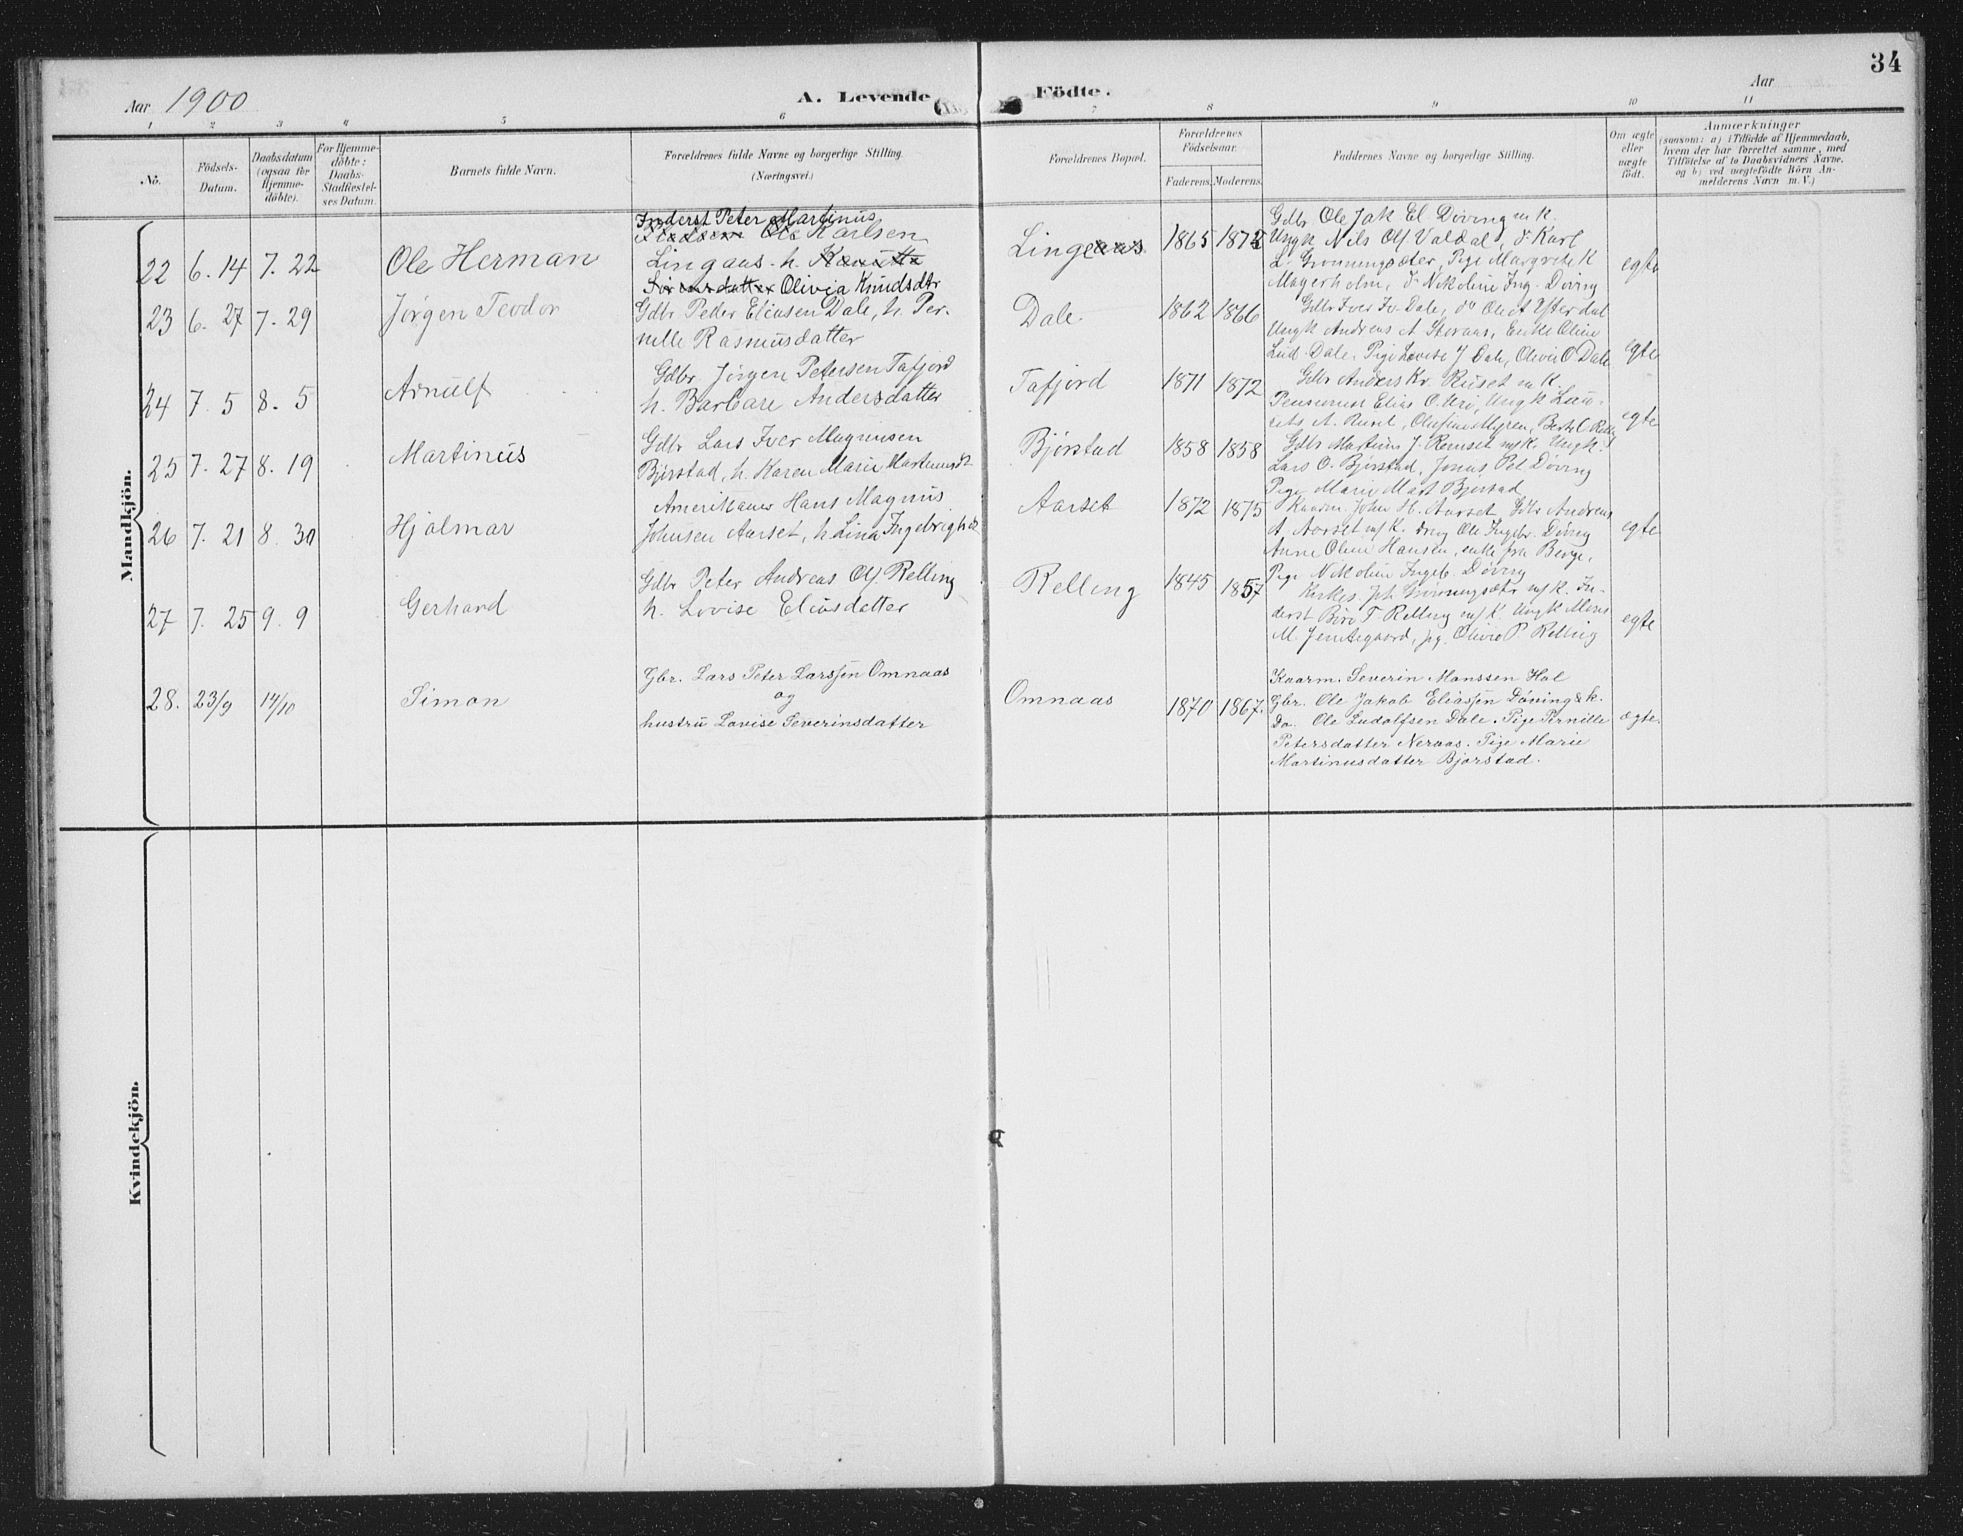 34
Aar 1900
A. Levende Födte.
Aar
1 2 3 4 5 6 7 8 9 10 11
No.
Födsels-Datum.
Daabsdatum (ogsaa for Hjemme-döbte).
For Hjemme-döbte: Daabs-Stadfæstel-ses Datum.
Barnets fulde Navn.
Forældrenes fulde Navne og borgerlige Stilling.
(Næringsvei.)
Forældrenes Bopæl.
Forældrenes Födselsaar.
Faderens. Moderens.
Faddernes Navne og borgerlige Stilling.
Om ægte eller uægte födt.
Anmærkninger
(saasom: a) i Tilfælde af Hjemmedaab,
hvem der har forrettet samme, med
Tilföielse af to Daabsvidners Navne.
og b) ved uægtefödte Börn An-
melderens Navn m. V.)
Mandkjön.
22 6. 14 7. 22 Ole Herman
Inderst Peter Martinus
Ole Karlsen
Lingaas. h.
Olivia Knudsdtr
Lingeaas 1865 1872
Gdbr Ole Jak El. Döving m K.
Ungk Nils Olf Valdal, do Karl
L. Grönningsæter, Pige Margrete K
Magerholm, do Nikoline Ing. Döving
egte
23 6. 27 7. 29 Jörgen Teodor
Gdbr Peder Eliasen Dale, h. Per-
nille Rasmusdatter
Dale. 1862 1866
Gdbr Iver Iv. Dale, do Ole A Ytterdal
Ungk Andreas A Storaas, Enke Oline
Lud. Dale, Pige Lovise J Dale, Olivie O Dale
egte
24 7. 5 8. 5 Arnulf
Gdbr. Jörgen Petersen Tafjord
h. Barbare Andersdatter
Tafjord 1871 1872
Gdbr Anders Kr. Ruset m K.
Pensionist Elias O. Uri, Ungk
A. Ruset, Olufine Myren,
egte
25 7. 27 8. 19 Martinus
Gdbr Lars Iver Magnusen
Bjørstad, h. Karen Marie Martinusdt
Bjørstad 1858 1858
Gdbr Martinus J. Remset m/K. Ungk.
Lars O. Bjørstad, Jonas Pet Döving
Pige Marie Mart Bjørstad
26 7. 21 8. 30 Hjalmar
Amerikaner Hans Magnus
Johnsen Aarset, h. Lina Ingebrigtsd
Aarset 1872 1875
Kaarm. John H. Aarset Gdbr Andreas
A. Aarset m/K. Ole Ingebr. Döving
Anne Oline Hansen, enke fra Berge,
Pige Nikoline Ingeb. Döving
egte
27 7. 25 9. 9 Gerhard
Gdbr Peter Andreas Olf. Relling
h. Lovise Eliasdatter
Relling 1845 1857
Kirkes. Joh. Grönningsæter m/K. In-
derst T. Relling m/K. Ungk
M. Jemtegaard, pg. Olivie P Relling
egte
28. 23/9 14/10 Simon
Gbr. Lars Peter Larssen Omnaas
og
hustru Lovise Severinsdatter
Omnaas 1870 1867.
Kaarm. Severin Hanssen Hol
Gbr. Ole Jakob Eliassen Döving & k.
Do. Ole Ludolfsen Dale. Pige Pernille
Petersdatter Neraas. Pige Marie
Martinusdatter Bjørstad.
ægte.
Kvindekjön.